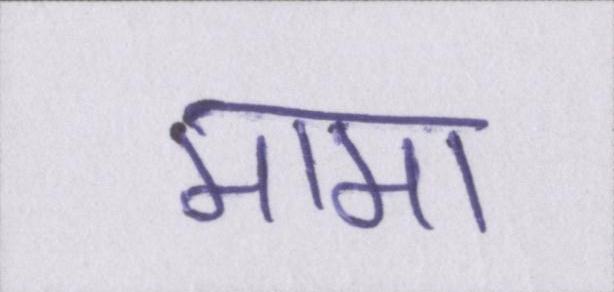 मामा